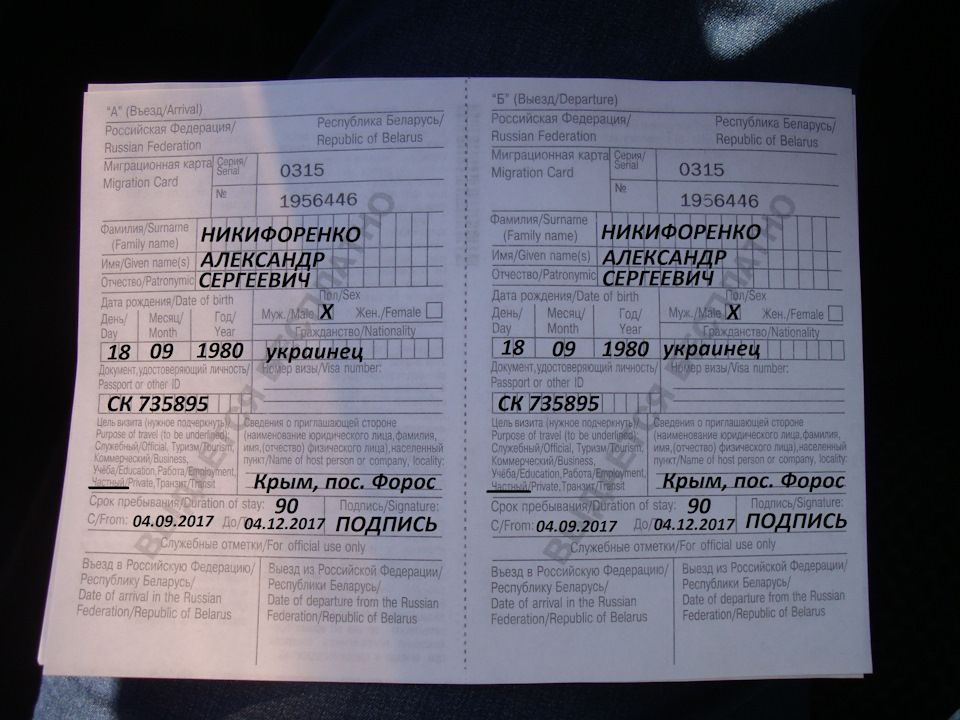 "А" (Въезд/Arrival)
Российская Федерация/
Russian Federation
Республика Беларусь/
Republic of Belarus
Миграционная карта
Migration Card
Серия/
Serial
0315
№
1956446
Фамилия/Surname
(Family name)
НИКИФОРЕНКО
Имя/Given name(s)
АЛЕКСАНДР
Отчество/Patronymic
СЕРГЕЕВИЧ
Дата рождения/Date of birth
Пол/Sex
День/
Day
Месяц/
Month
Год/
Year
Муж./Male X Жен./Female
Гражданство/Nationality
18 09 1980 украинец
Документ, удостоверяющий личность/
Passport or other ID
Номер визы/Visa number:
СК 735895
Цель визита (нужное подчеркнуть)/
Purpose of travel (to be underlined):
Служебный/Official, Туризм/Tourism,
Коммерческий/Business,
Учёба/Education, Работа/Employment,
Частный/Private, Транзит/Transit
Сведения о приглашающей стороне
(наименование юридического лица, фамилия,
имя, (отчество) физического лица), населенный
пункт/Name of host person or company, locality:
Крым, пос. Форос
Срок пребывания/Duration of stay: 90
С/From: 04.09.2017 До/ 04.12.2017
Подпись/Signature:
ПОДПИСЬ
Служебные отметки/For official use only
Въезд в Российскую Федерацию/
Республику Беларусь/
Date of arrival in the Russian
Federation/Republic of Belarus
Выезд из Российской Федерации/
Республики Беларусь/
Date of departure from the Russian
Federation/Republic of Belarus
ВЫДАЕТСЯ БЕСПЛАТНО
"Б" (Выезд/Departure)
Российская Федерация/
Russian Federation
Республика Беларусь/
Republic of Belarus
Миграционная карта
Migration Card
Серия/
Serial
0315
№
1956446
Фамилия/Surname
(Family name)
НИКИФОРЕНКО
Имя/Given name(s)
АЛЕКСАНДР
Отчество/Patronymic
СЕРГЕЕВИЧ
Дата рождения/Date of birth
Пол/Sex
День/
Day
Месяц/
Month
Год/
Year
Муж./Male X Жен./Female
Гражданство/Nationality
18 09 1980 украинец
Документ, удостоверяющий личность/
Passport or other ID
Номер визы/Visa number:
СК 735895
Цель визита (нужное подчеркнуть)/
Purpose of travel (to be underlined):
Служебный/Official, Туризм/Tourism,
Коммерческий/Business,
Учёба/Education, Работа/Employment,
Частный/Private, Транзит/Transit
Сведения о приглашающей стороне
(наименование юридического лица, фамилия,
имя, (отчество) физического лица), населенный
пункт/Name of host person or company, locality:
Крым, пос. Форос
Срок пребывания/Duration of stay: 90
С/From: 04.09.2017 До/ 04.12.2017
Подпись/Signature:
ПОДПИСЬ
Служебные отметки/For official use only
Въезд в Российскую Федерацию/
Республику Беларусь/
Date of arrival in the Russian
Federation/Republic of Belarus
Выезд из Российской Федерации/
Республики Беларусь/
Date of departure from the Russian
Federation/Republic of Belarus
ВЫДАЕТСЯ БЕСПЛАТНО